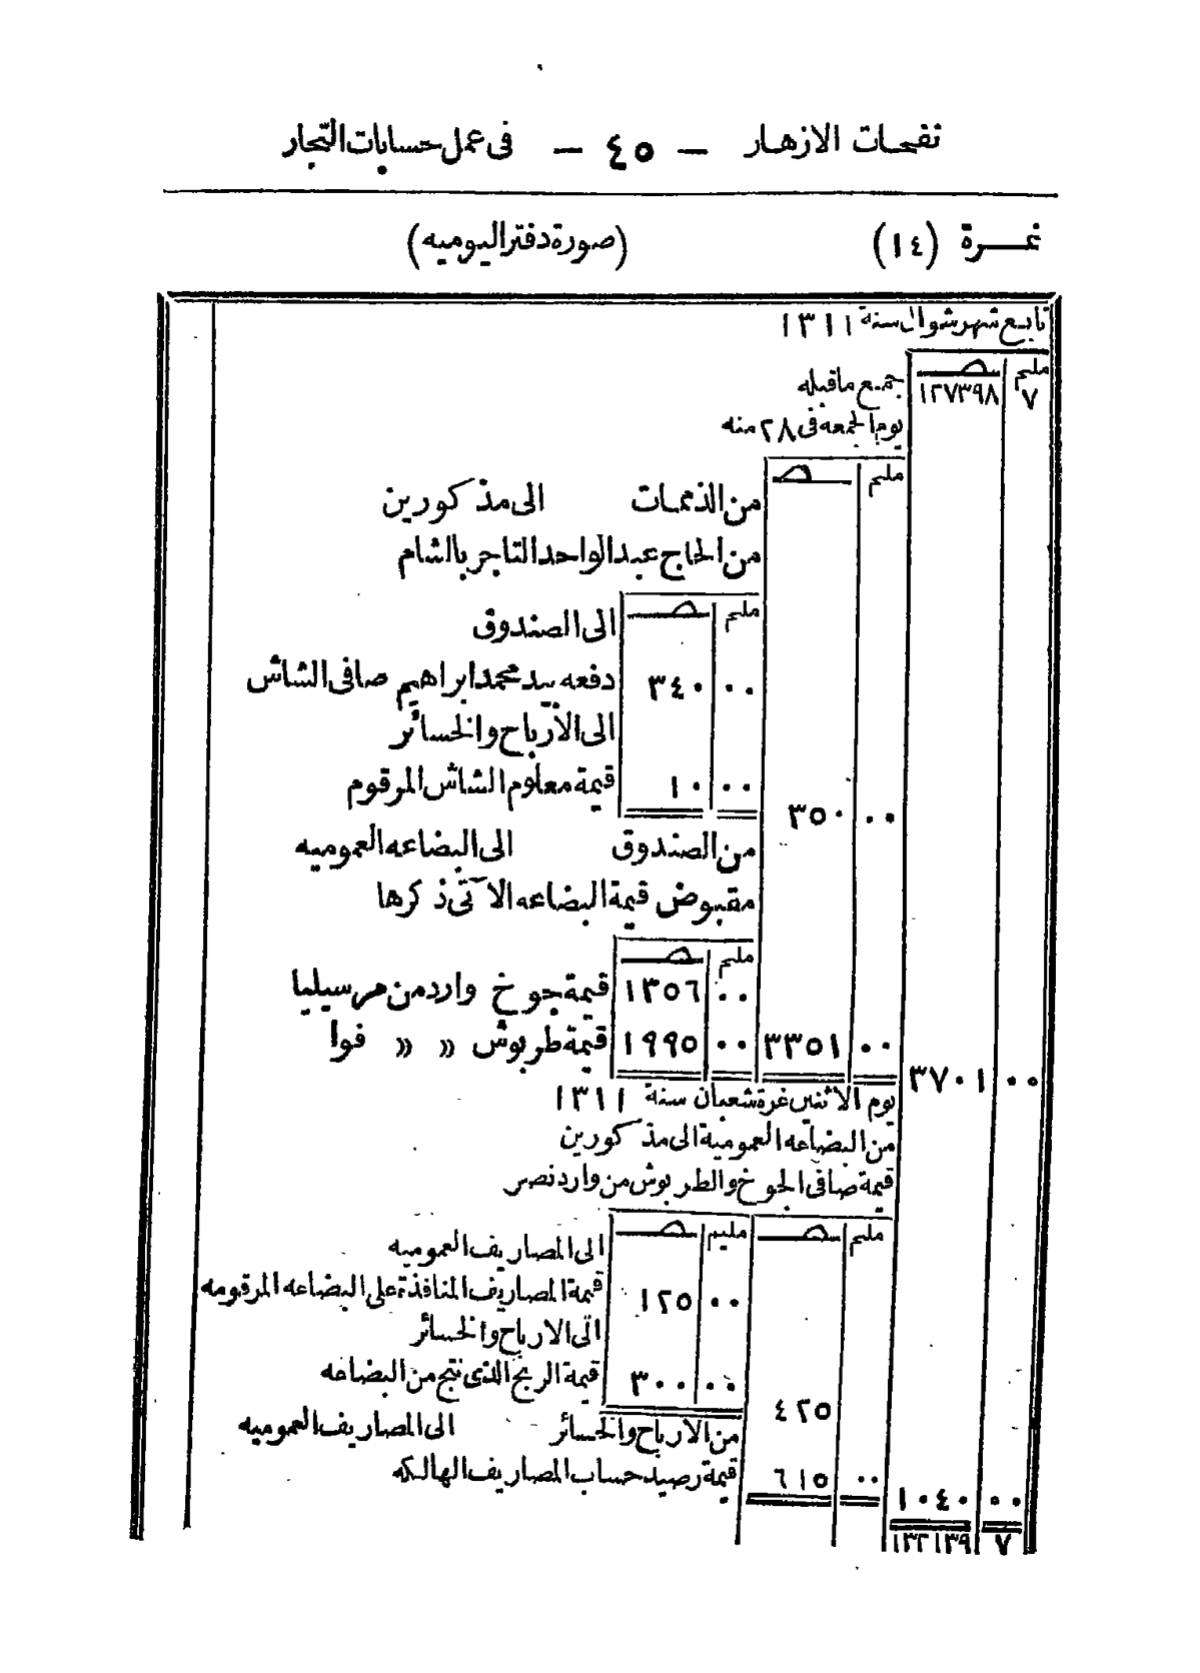 نفحات الازهار — ٤٥ — فى عمل حسابات التجار
نمرة (١٤) (صورة دفتر اليوميه)
تابع شهر شوال سنة ١٣١١
مليم
٧ ١٢٧٣٩٨ جمع ماقبله
يوم الجمعه فى ٢٨ منه
مليم
من الذممات الى مذكورين
من الحاج عبد الواحد التاجر بالشام
مليم الى الصندوق
٠٠ ٣٤٠ دفعه بيد محمد ابراهيم صافى الشاش
الى الأرباح والخسائر
٠٠ ١٠ قيمة معلوم الشاش المرقوم
٠٠ ٣٥٠
من الصندوق الى البضاعه العموميه
مقبوض قيمة البضاعه الآتى ذكرها
مليم
٠٠ ١٣٥٦ قيمة جوخ وارد من مرسيليا
٠٠ ٣٣٥١ ٠٠ ١٩٩٥ قيمة طربوش » » فوا
٠٠ ٣٧٠١
يوم الاثنين غرة شعبان سنة ١٣١١
من البضاعه العمومية الى مذكورين
قيمة صافى الجوخ والطربوش من وارد نصر
مليم مليم
الى المصاريف العموميه
٠٠ ١٢٥ قيمة المصاريف المنافذة على البضاعه المرقومه
الى الارباح والخسائر
٠٠ ٣٠٠ قيمة الربح الذى نتج من البضاعه
٤٢٥
من الارباح والخسائر الى المصاريف العموميه
٠٠ ٦١٥ قيمة رصيد حساب المصاريف الهالكه
٠٠ ١٠٤٠
٧ ١٣٢١٣٩